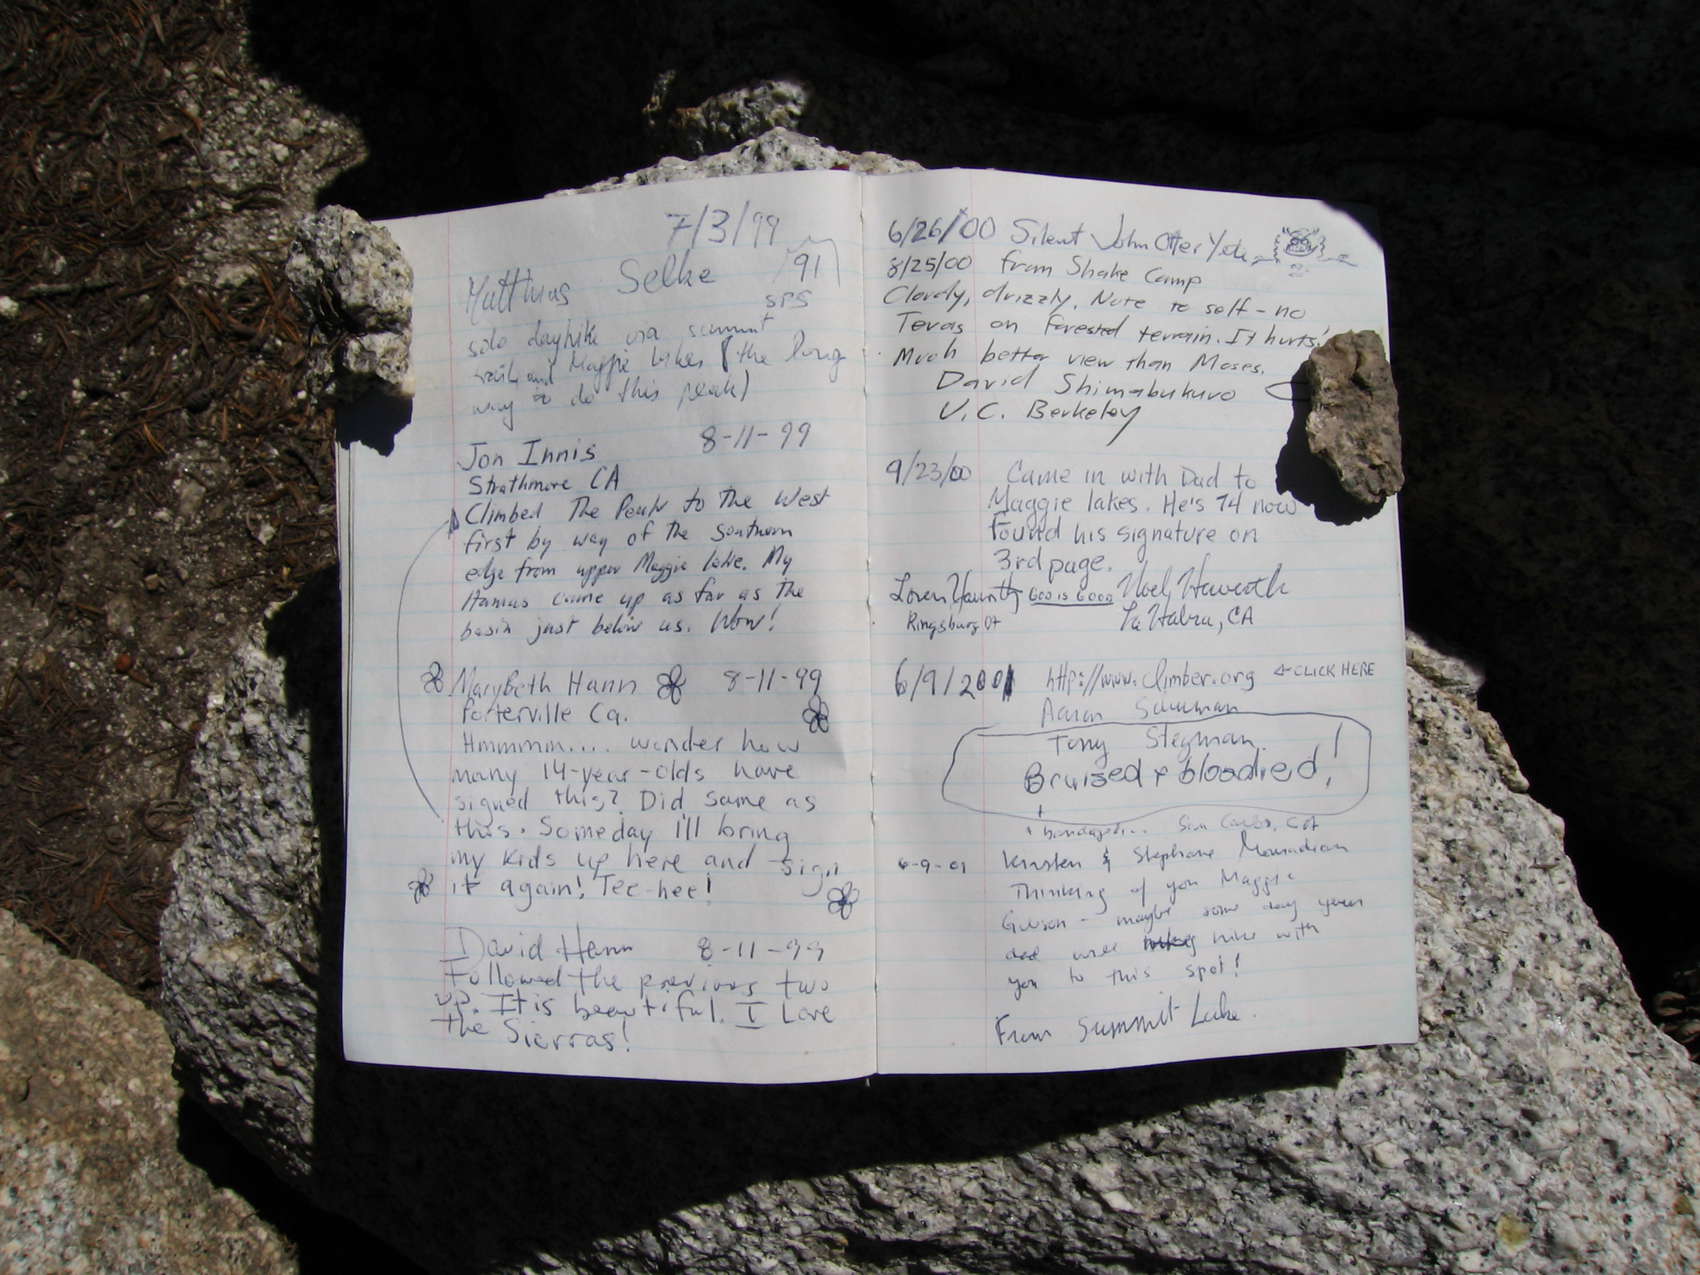 7/3/99
Matthias Selke 91
SPS
solo dayhike via summit
trail and Maggie Lakes (the long
way to do this peak)
Jon Innis 8-11-99
Strathmore CA
Climbed The Peak to The West
first by way of the Southern
edge from upper Maggie lake. My
came up as far as The
basin just below us. Wow!
MaryBeth Hann 8-11-99
Porterville Ca.
Hmmmm.... wonder how
many 14-year-olds have
signed this? Did same as
this. Someday I'll bring
my kids up here and sign
it again! Tee-hee!
David Hann 8-11-99
Followed the previous two
up. It is beautiful. I Love
the Sierras!
6/26/00 Silent John Otter
8/25/00 from Shake Camp
Cloudy, drizzly. Note to self - no
Tevas on forested terrain. It hurts!
Much better view than Moses.
David Shimabukuro
U.C. Berkeley
9/23/00 Came in with Dad to
Maggie lakes. He's 74 now
Found his signature on
3rd page.
Loren Haworth GOD IS GOOD Noel Haworth
Kingsburg CA La Habra, CA
6/9/2001 http://www.climber.org ← CLICK HERE
Aaron Schuman
Tony Stegman
Bruised + bloodied!
+ bandaged... San Carlos, CA
6-9-01 Kirsten & Stephane Mouradian
Thinking of you Maggie
- maybe some day your
dad will hike with
you to this spot!
From Summit Lake.